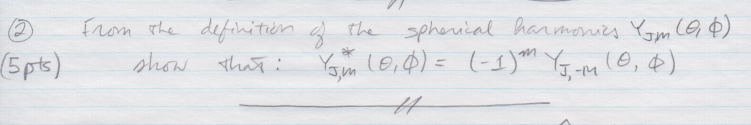 ② From the definition of the spherical harmonics Y_{Jm}(θ, ϕ)
(5pts) show that: Y*_{J,m}(θ, ϕ) = (-1)^m Y_{J,-m}(θ, ϕ)